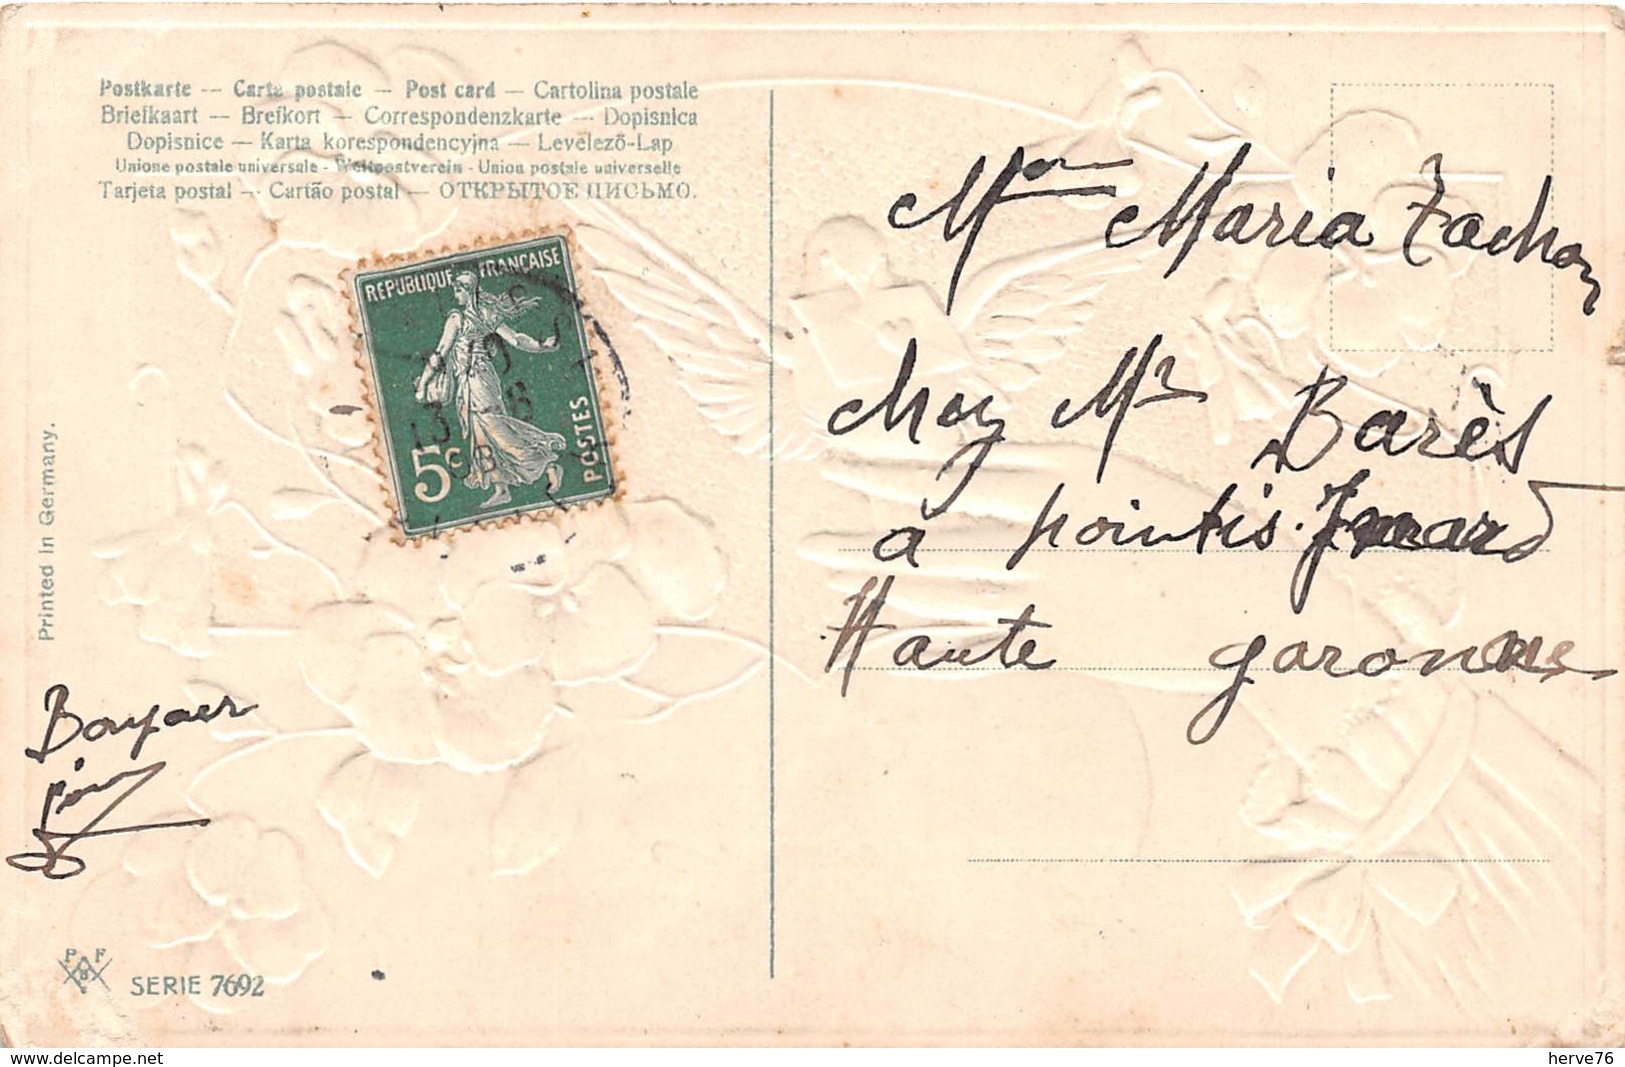 Postkarte -- Carte postale -- Post card -- Cartolina postale
Briefkaart -- Brefkort -- Correspondenzkarte -- Dopisnica
Dopisnice -- Karta korespondencyjna -- Levelező-Lap
Unione postale universale - Weltpostverein - Union postale universelle
Tarjeta postal -- Cartão postal -- ОТКРЫТОЕ ПИСЬМО.
REPUBLIQUE FRANÇAISE
5c POSTES
13 -8
08
Printed in Germany.
Mme Maria
chez Mr Barès
a pointis Inard
Haute garonne
P F
B
SERIE 7692
herve76